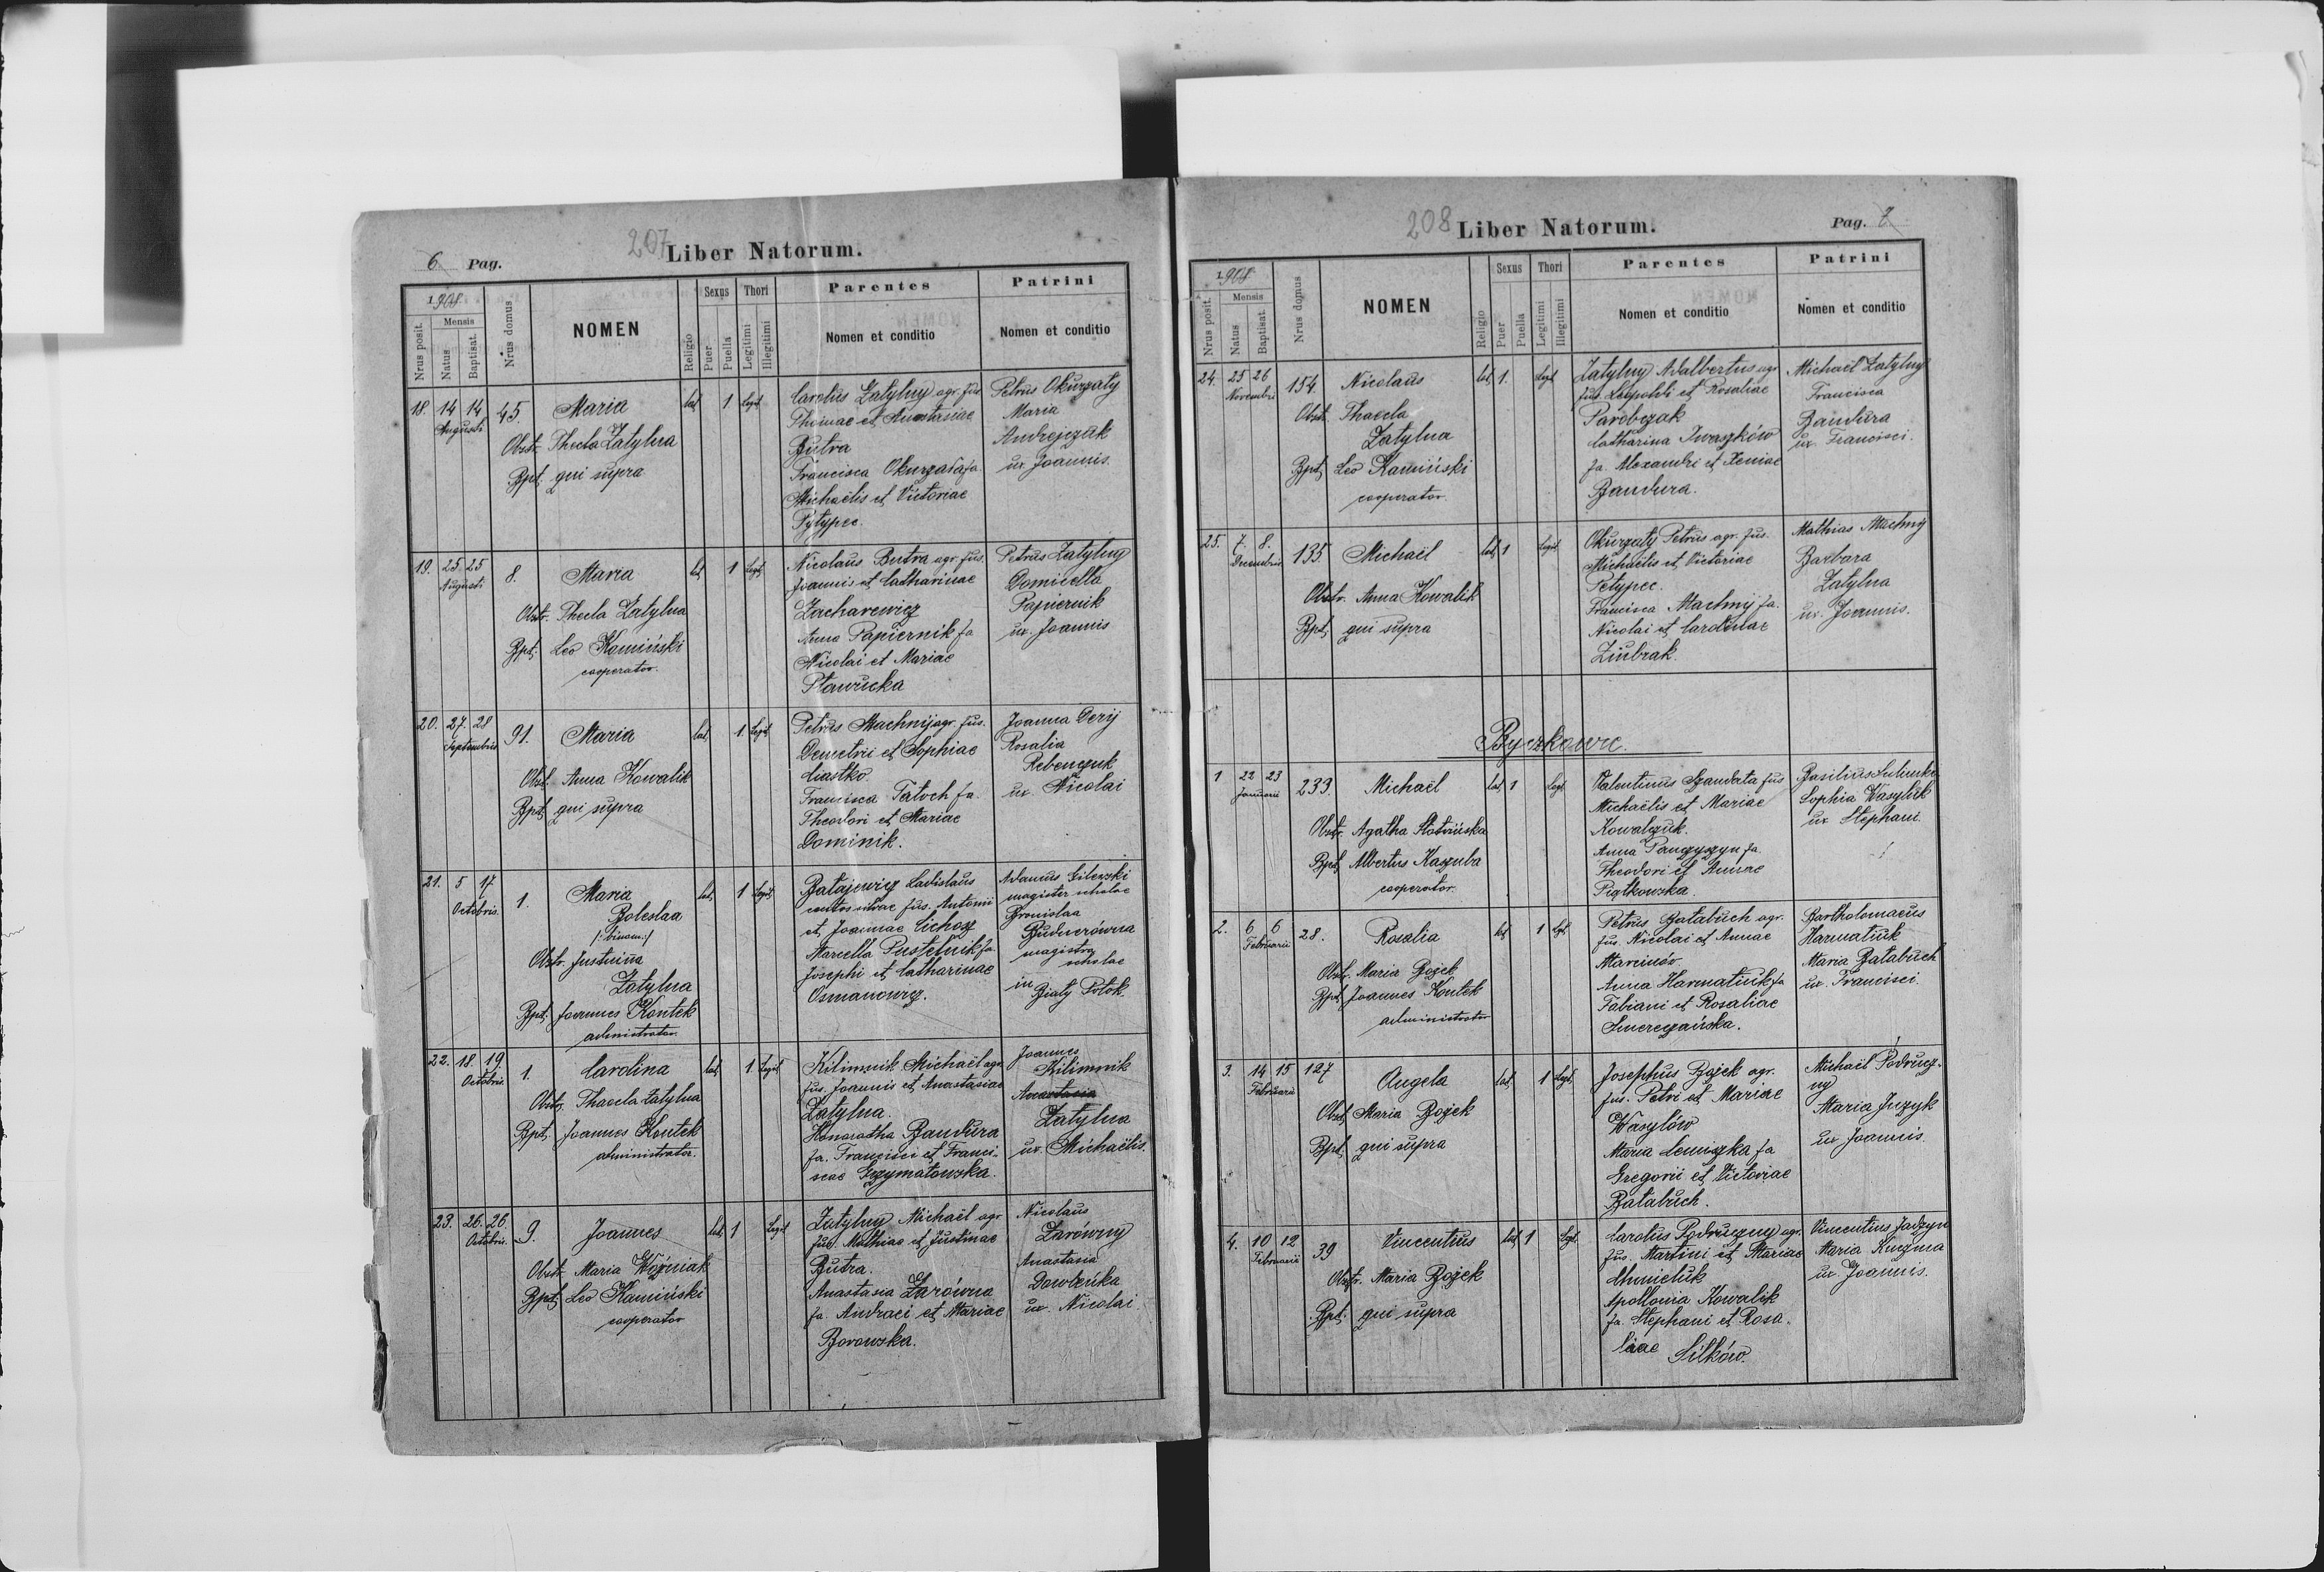 6 Pag.
207
Liber Natorum.
1908
Nrus posit.
Mensis
Natus
Baptisat.
Nrus domus
NOMEN
Religio
Sexus
Puer
Puella
Thori
Legitimi
Illegitimi
Parentes
Nomen et conditio
Patrini
Nomen et conditio
18. 14 14 Augusti
45.
Maria
Obstr. Thecla Zatylna
Bpt. qui supra
lat. 1 Legit.
Carolus Zatylny agr. fus
Thomae et Anastasiae
Butra
Francisca Okurzata fa
Michaelis et Victoriae
Pytypec.
Petrus Okurzaty
Maria
Andrejczak
ux Joannis.
19. 25. 25 Augusti
8.
Maria
Obstr. Thecla Zatylna
Bpt. Leo Kamiński
cooperator.
lat. 1 Legit.
Nicolaus Butra agr. fus.
Joannis et Catharinae
Zacharewicz
Anna Papiernik fa
Nicolai et Mariae
Sławucka
Petrus Zatylny
Domicella
Papiernik
ux. Joannis
20. 27. 28 Septembris
91.
Maria
Obst. Anna Kowalik
Bpt. qui supra
lat. 1. Legit.
Petrus Machnij agr. fus.
Demetrii et Sophiae
Ciastko
Francisca Tatoch fa.
Theodori et Mariae
Dominik.
Joanna Derij
Rosalia
Rebenczuk
ux Nicolai
21. 5 17 Octobris.
1.
Maria
Boleslaa
/:binom:/
Obstr. Justina
Zatylna
Bpt. Joannes Kontek
administrator.
lat. 1 Legit.
Batajewicz Ladislaus
custos silvae fus. Antonii
et Joannae Cichosz
Marcella Pustelnik fa
Josephi et Catharinae
Osmanowicz.
Adamus Gilewski
magister scholae
Bronislaa
Budnerówna
magistra
scholae
in
Biały Potok.
22. 18. 19. Octobris.
1.
Carolina
Obstr. Thaecla Zatylna
Bpt. Joannes Kontek
administrator.
lat. 1. Legit.
Kilimnik Michaël agr.
fus. Joannis et Anastasiae
Zatylna.
Honoratha Bandura
fa. Francisci et Franci-
scae Grzymałowska.
Joannes
Kilimnik
Anastasia
Zatylna
ux. Michaëlis.
23. 26. 26. Octobris.
9.
Joannes
Obstr. Maria Woźniak
Bpt. Leo Kamiński
cooperator
lat. 1 Legit
Zatylny Michaël agr
fus. Mathiae et Justinae
Butra.
Anastasia Zarówna
fa. Andraei et Mariae
Borowska.
Nicolaus
Zarówny
Anastasia
ux. Nicolai.
208
Liber Natorum.
Pag. 7
1908
Nrus posit.
Mensis
Natus
Baptisat.
Nrus domus
NOMEN
Religio
Sexus
Puer
Puella
Thori
Legitimi
Illegitimi
Parentes
Nomen et conditio
Patrini
Nomen et conditio
24. 25 26 Novembri
154.
Nicolaus
Obst. Thaecla
Zatylna
Bpt. Leo Kamiński
cooperator.
lat. 1. Legit
Zatylny Adalbertus agr
fus. Leopoldi et Rosaliae
Parobczak
Catharina Iwaszków
fa. Alexandri et Xeniae
Bandura.
Michaël Zatylny
Francisca
Bandura
ux. Francisci.
25. 7. 8. Decembris
135.
Michaël
Obstr. Anna Kowalik
Bpt. qui supra
lat. 1 Legit.
Okurzaty Petrus agr. fus.
Michaëlis et Victoriae
Petypec.
Francisca Machnij fa.
Nicolai et Carolinae
Ziubrak.
Mathias Machnij
Barbara
Zatylna
ux. Joannis.
Byczkowce.
1 22 23 Januarii
233.
Michaël
Obstr. Agatha Słotwińska
Bpt. Albertus Kaszuba
cooperator.
lat. 1 Legt.
Valentinus Szandata fus
Michaëlis et Mariae
Kowalczuk.
Anna Panczyszyn fa.
Theodori et Annae
Piątkowska.
Sophia Wasylik
ux Stephani.
2. 6 6 Februarii
28.
Rosalia
Obstr. Maria Bojek
Bpt. Joannes Kontek
administrator
lat. 1 Lgt.
Petrus Batabuch agr.
fus. Nicolai et Annae
Marcinów.
Anna Harmatiuk fa
Fabiani et Rosaliae
Smereczańska.
Bartholomaeus
Harmatiuk
Maria Batabuch
ux. Francisci.
3. 14 15 Februarii
127
Angela
Obst. Maria Bojek
Bpt. qui supra
lat. 1 Legt.
Josephus Bojek agr.
fus. Petri et Mariae
Wasylów
Maria Lemiszka fa
Gregorii et Victoriae
Batabuch.
Michaël Podrucz-
ny
Maria Juzyk
ux Joannis.
4. 10 12 Februarii
39
Vincentius
Obstr. Maria Bojek
Bpt. qui supra
lat. 1 Legt.
Carolus Podruczny agr.
fus. Martini et Mariae
Chmieluk
Apollonia Kowalik
fa. Stephani et Rosa-
liae Silków.
Vincentius Jadzyn
Maria Kuczma
ux. Joannis.